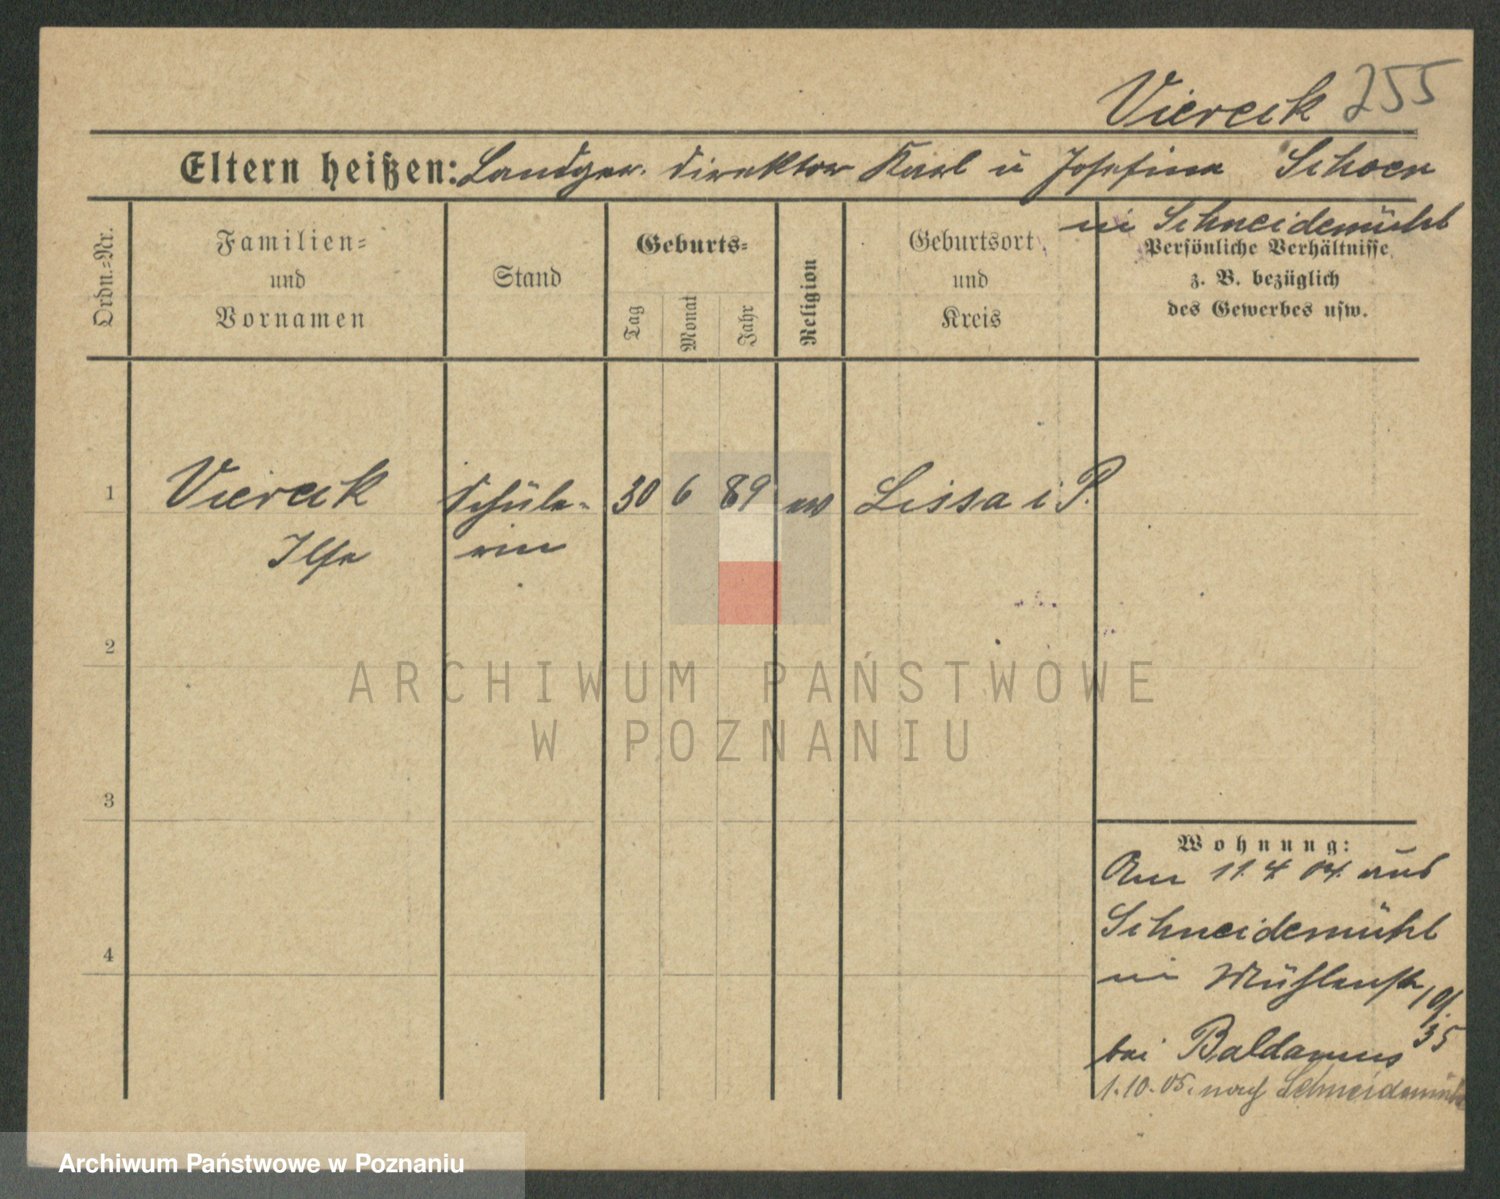 Viereck 255
Eltern heißen: Landger. Direktor Karl u Josefina Schoen
in Schneidemühl
Ordn.=Nr.
Familien=
und
Vornamen
Stand
Geburts=
Tag
Monat
Jahr
Religion
Geburtsort
und
Kreis
Persönliche Verhältnisse
z. B. bezüglich
des Gewerbes usw.
1
Viereck
Ilse
Schüle-
rin
30
6
89
ev
Lissa i P.
2
3
4
Wohnung:
Am 11. 4. 04. aus
Schneidemühl
in Mühlenstr 19
35
bei Baldamus
1.10.05. nach Schneidemühl
ARCHIWUM PAŃSTWOWE
W POZNANIU
Archiwum Państwowe w Poznaniu